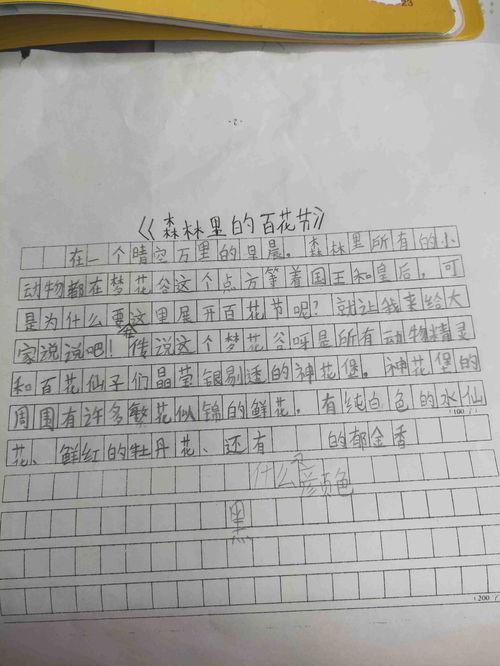 23
·2·
《森林里的百花节》
在一个晴空万里的早晨。森林里所有的小
动物都在梦花谷这个点方等着国王和皇后，可
是为什么要这里展开百花节呢？就让我来给大
会
家说说吧！传说这个梦花谷呀是所有动物精灵
和百花仙子们晶莹银剔透的神花堡。神花堡的
周围有许多繁花似锦的鲜花。有纯白色的水仙
(100
花、鲜红的牡丹花、还有 的郁金香
什么 颜色
黑
(200